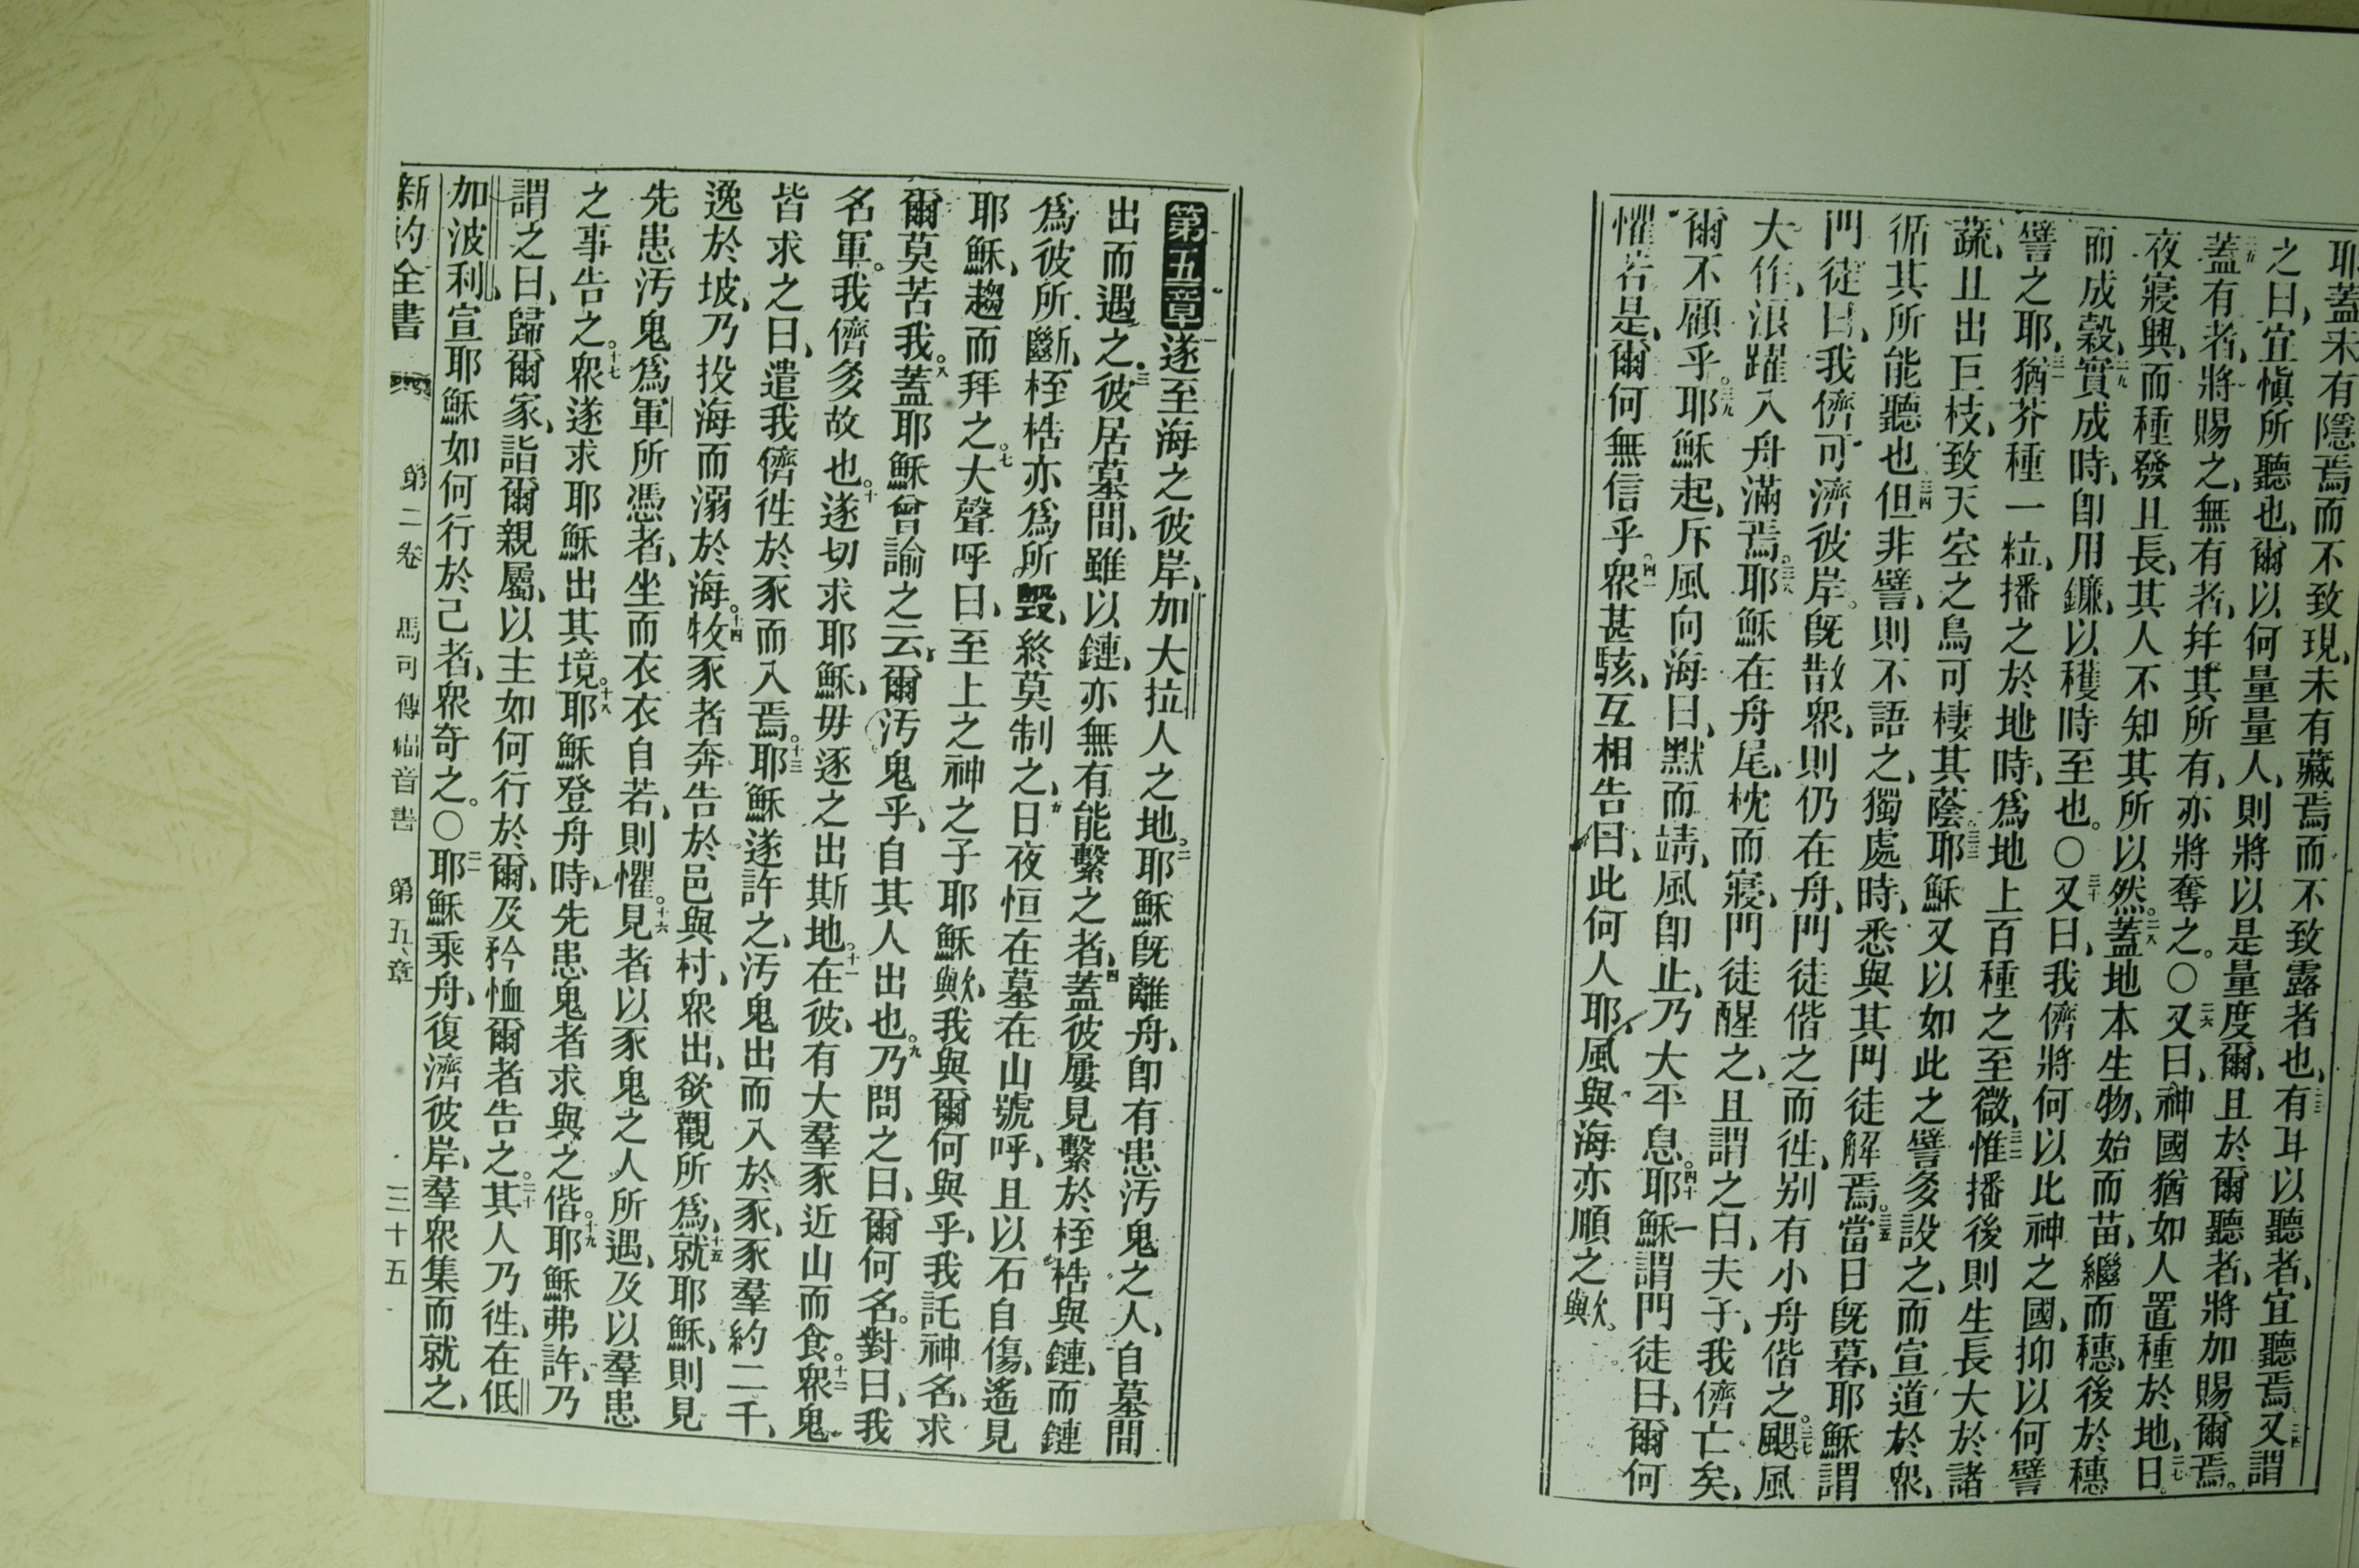 耶、蓋未有隱焉而不致現、未有藏焉而不致露者也、二三有耳以聽者、宜聽焉、二四又謂
之曰、宜愼所聽也、爾以何量量人、則將以是量度爾、且於爾聽者、將加賜爾焉。
二五蓋有者、將賜之、無有者、幷其所有、亦將奪之。〇二六又曰、神國猶如人置種於地、二七日。
夜寢興、而種發且長、其人不知其所以然。二八蓋地本生物、始而苗、繼而穗、後於穗
而成穀、二九實成時、卽用鐮、以穫時至也。〇三十又曰、我儕將何以比神之國、抑以何譬
譬之耶、三一猶芥種一粒、播之於地時、爲地上百種之至微、三二惟播後則生長大於諸
蔬、且出巨枝、致天空之鳥可棲其蔭。三三耶穌又以如此之譬多設之、而宣道於衆、
循其所能聽也、三四但非譬、則不語之、獨處時、悉與其門徒解焉。三五當日旣暮、耶穌謂
門徒曰、我儕可濟彼岸。旣散衆、則仍在舟、門徒偕之而往、別有小舟偕之。三七颶風
大作、浪躍入舟滿焉。三八耶穌在舟尾、枕而寢、門徒醒之、且謂之曰、夫子、我儕亡矣、
爾不顧乎。三九耶穌起、斥風向海曰、默而靖、風卽止、乃大平息。四十耶穌謂門徒曰、爾何
懼若是、爾何無信乎。四一衆甚駭、互相告曰、此何人耶、風與海亦順之歟。
第五章 遂至海之彼岸、加大拉人之地。二耶穌旣離舟、卽有患汚鬼之人、自墓間
出而遇之。三彼居墓間、雖以鏈、亦無有能繫之者、四蓋彼屢見繫於桎梏與鏈、而鏈
爲彼所斷、桎梏亦爲所毀、終莫制之、五日夜恒在墓在山號呼、且以石自傷、遙見
耶穌、趨而拜之。七大聲呼曰、至上之神之子耶穌歟、我與爾何與乎、我託神名、求
爾莫苦我。八蓋耶穌曾諭之云、爾汚鬼乎、自其人出也。九乃問之曰、爾何名。對曰、我
名軍。我儕多故也。十遂切求耶穌、毋逐之出斯地。十一在彼、有大羣豕近山而食。十二衆鬼
皆求之曰、遣我儕往於豕而入焉。十三耶穌遂許之、汚鬼出而入於豕、豕羣約二千、
逸於坡、乃投海而溺於海。十四牧豕者奔告於邑與村、衆出、欲觀所爲、十五就耶穌、則見
先患汚鬼爲軍所憑者、坐而衣衣自若、則懼。十六見者以豕鬼之人所遇、及以羣患
之事告之。十七衆遂求耶穌出其境。十八耶穌登舟時、先患鬼者求與之偕。十九耶穌弗許、乃
謂之曰、歸爾家、詣爾親屬、以主如何行於爾、及矜恤爾者告之。二十其人乃往、在低
加波利、宣耶穌如何行於己者、衆奇之。〇二一耶穌乘舟、復濟彼岸、羣衆集而就之、
新約全書 第二卷 馬可傳福音書 第五章 三十五